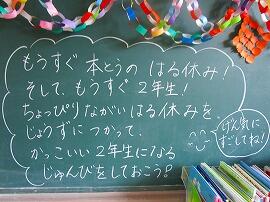 もうすぐ 本とうの はる休み!
そして、もうすぐ2年生!
ちょっぴりながいはる休みを、
じょうずにつかって、
かっこいい2年生になる
じゅんびをしておこう!
げん気に
すごしてね!